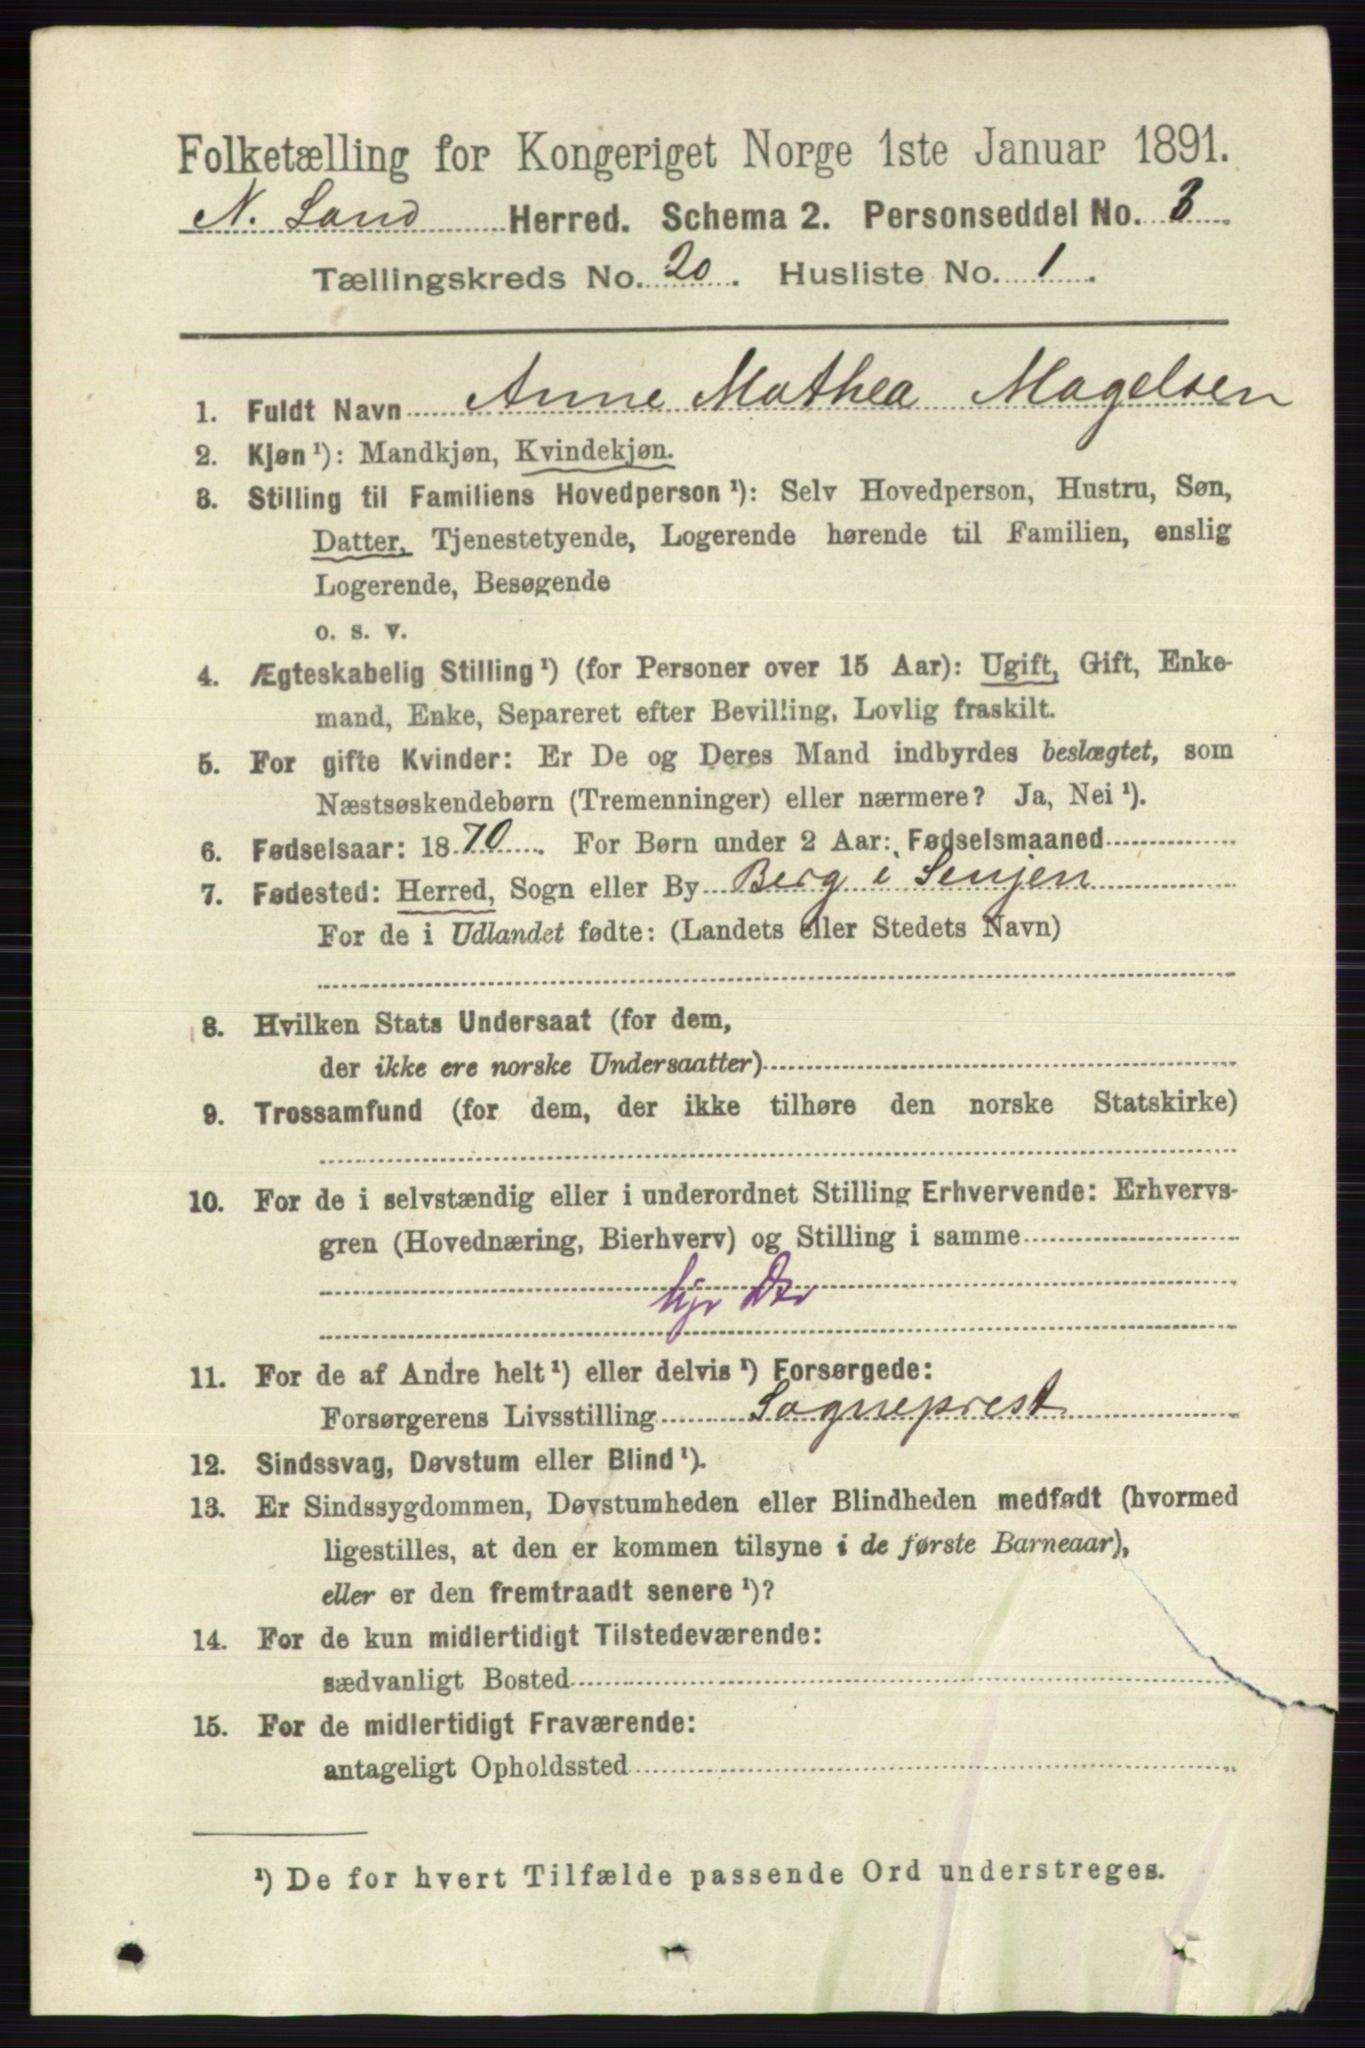 Folketælling for Kongeriget Norge 1ste Januar 1891.
N. Land Herred. Schema 2. Personseddel No. 3.
Tællingskreds No. 20. Husliste No. 1.
1. Fuldt Navn Anne Mathea Magelsen
2. Kjøn ¹): Mandkjøn, Kvindekjøn.
3. Stilling til Familiens Hovedperson ¹): Selv Hovedperson, Hustru, Søn,
Datter, Tjenestetyende, Logerende hørende til Familien, enslig
Logerende, Besøgende
o. s. v.
4. Ægteskabelig Stilling ¹) (for Personer over 15 Aar): Ugift, Gift, Enke-
mand, Enke, Separeret efter Bevilling, Lovlig fraskilt.
5. For gifte Kvinder: Er De og Deres Mand indbyrdes beslægtet, som
Næstsøskendebørn (Tremenninger) eller nærmere? Ja, Nei ¹).
6. Fødselsaar: 1870. For Børn under 2 Aar: Fødselsmaaned
7. Fødested: Herred, Sogn eller By Berg i Senjen
For de i Udlandet fødte: (Landets eller Stedets Navn)
8. Hvilken Stats Undersaat (for dem,
der ikke ere norske Undersaatter)
9. Trossamfund (for dem, der ikke tilhøre den norske Statskirke)
10. For de i selvstændig eller i underordnet Stilling Erhvervende: Erhvervs-
gren (Hovednæring, Bierhverv) og Stilling i samme
hjr
11. For de af Andre helt ¹) eller delvis ¹) Forsørgede:
Forsørgerens Livsstilling Sogneprest
12. Sindssvag, Døvstum eller Blind ¹).
13. Er Sindssygdommen, Døvstumheden eller Blindheden medfødt (hvormed
ligestilles, at den er kommen tilsyne i de første Barneaar),
eller er den fremtraadt senere ¹)?
14. For de kun midlertidigt Tilstedeværende:
sædvanligt Bosted
15. For de midlertidigt Fraværende:
antageligt Opholdssted
¹) De for hvert Tilfælde passende Ord understreges.